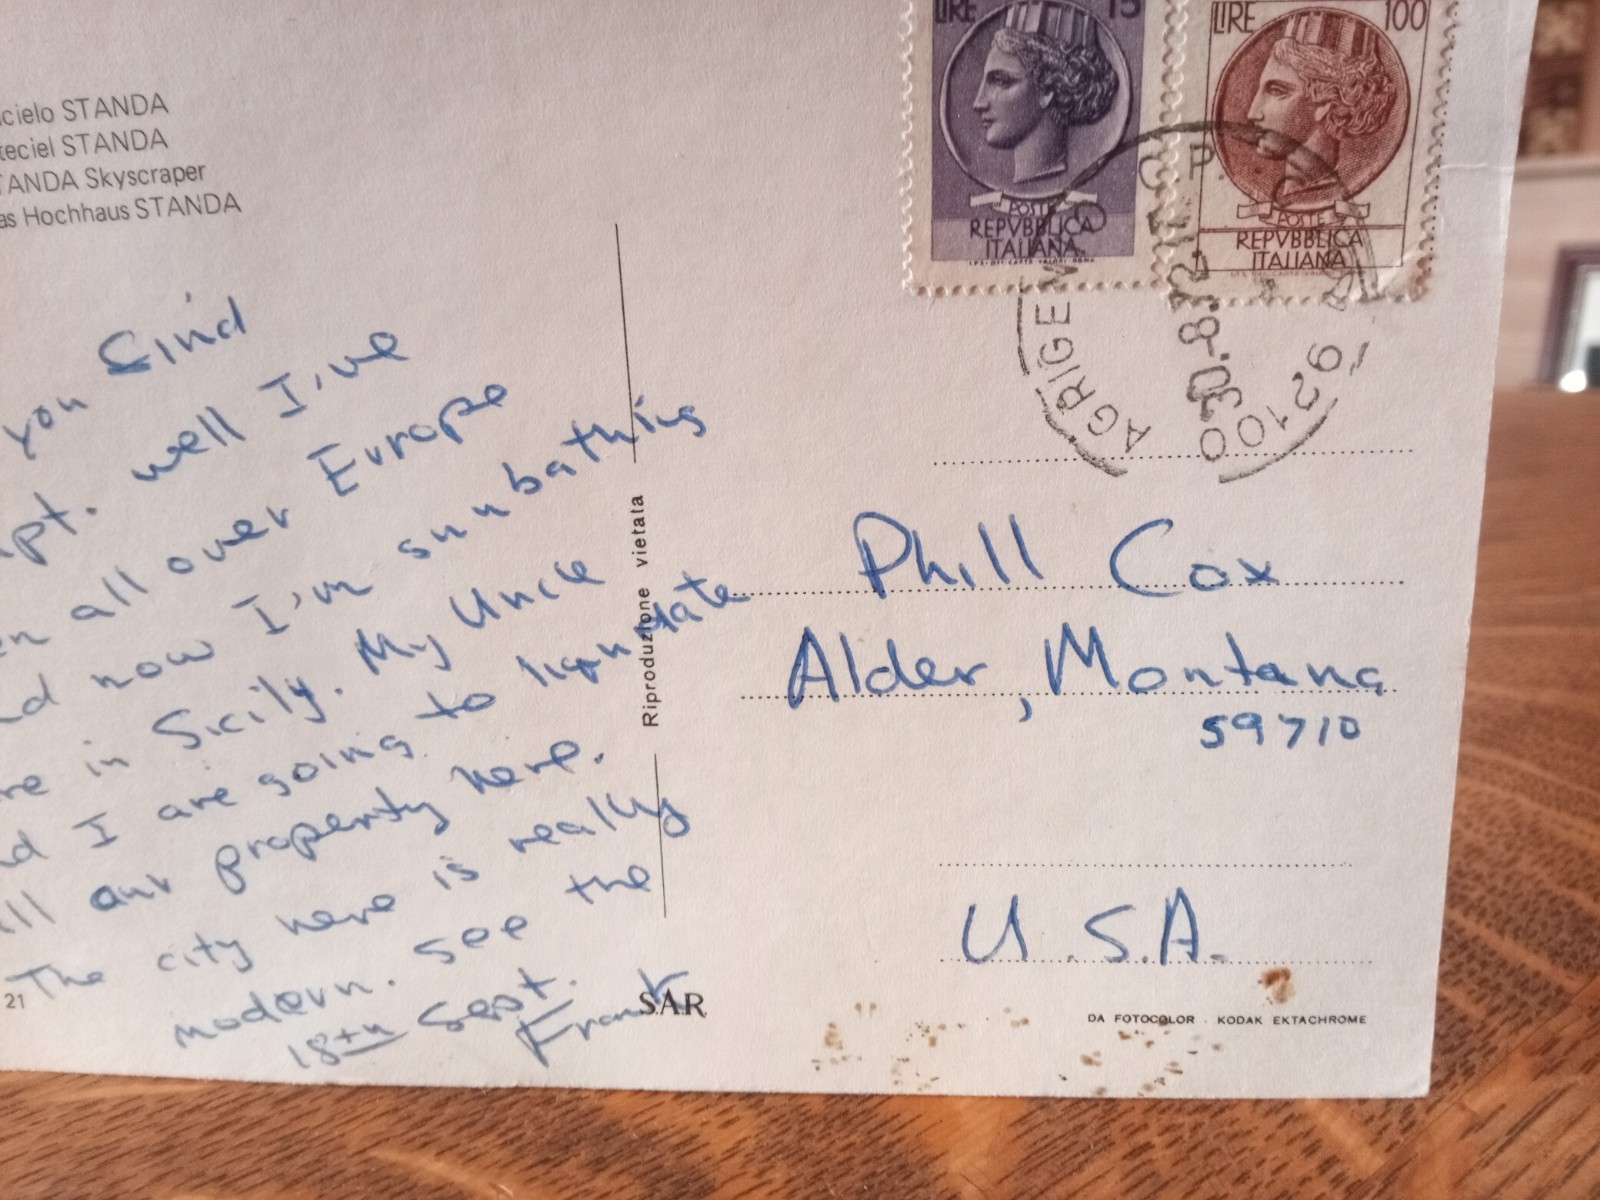 LIRE 15
LIRE 100
POSTE
REPVBBLICA
ITALIANA
POSTE
REPVBBLICA
ITALIANA
AGRIGEN
30-8-
92100
cielo STANDA
teciel STANDA
TANDA Skyscraper
as Hochhaus STANDA
you find
pt. well I've
en all over Europe
nd now I'm sunbathing
re in Sicily. My Uncle
nd I are going to liquidate
ll our property here.
The city here is really
modern. See the
18th Sept.
Frank
21
Riproduzione vietata
Phill Cox
Alder, Montana
59710
U.S.A.
SAR
DA FOTOCOLOR · KODAK EKTACHROME